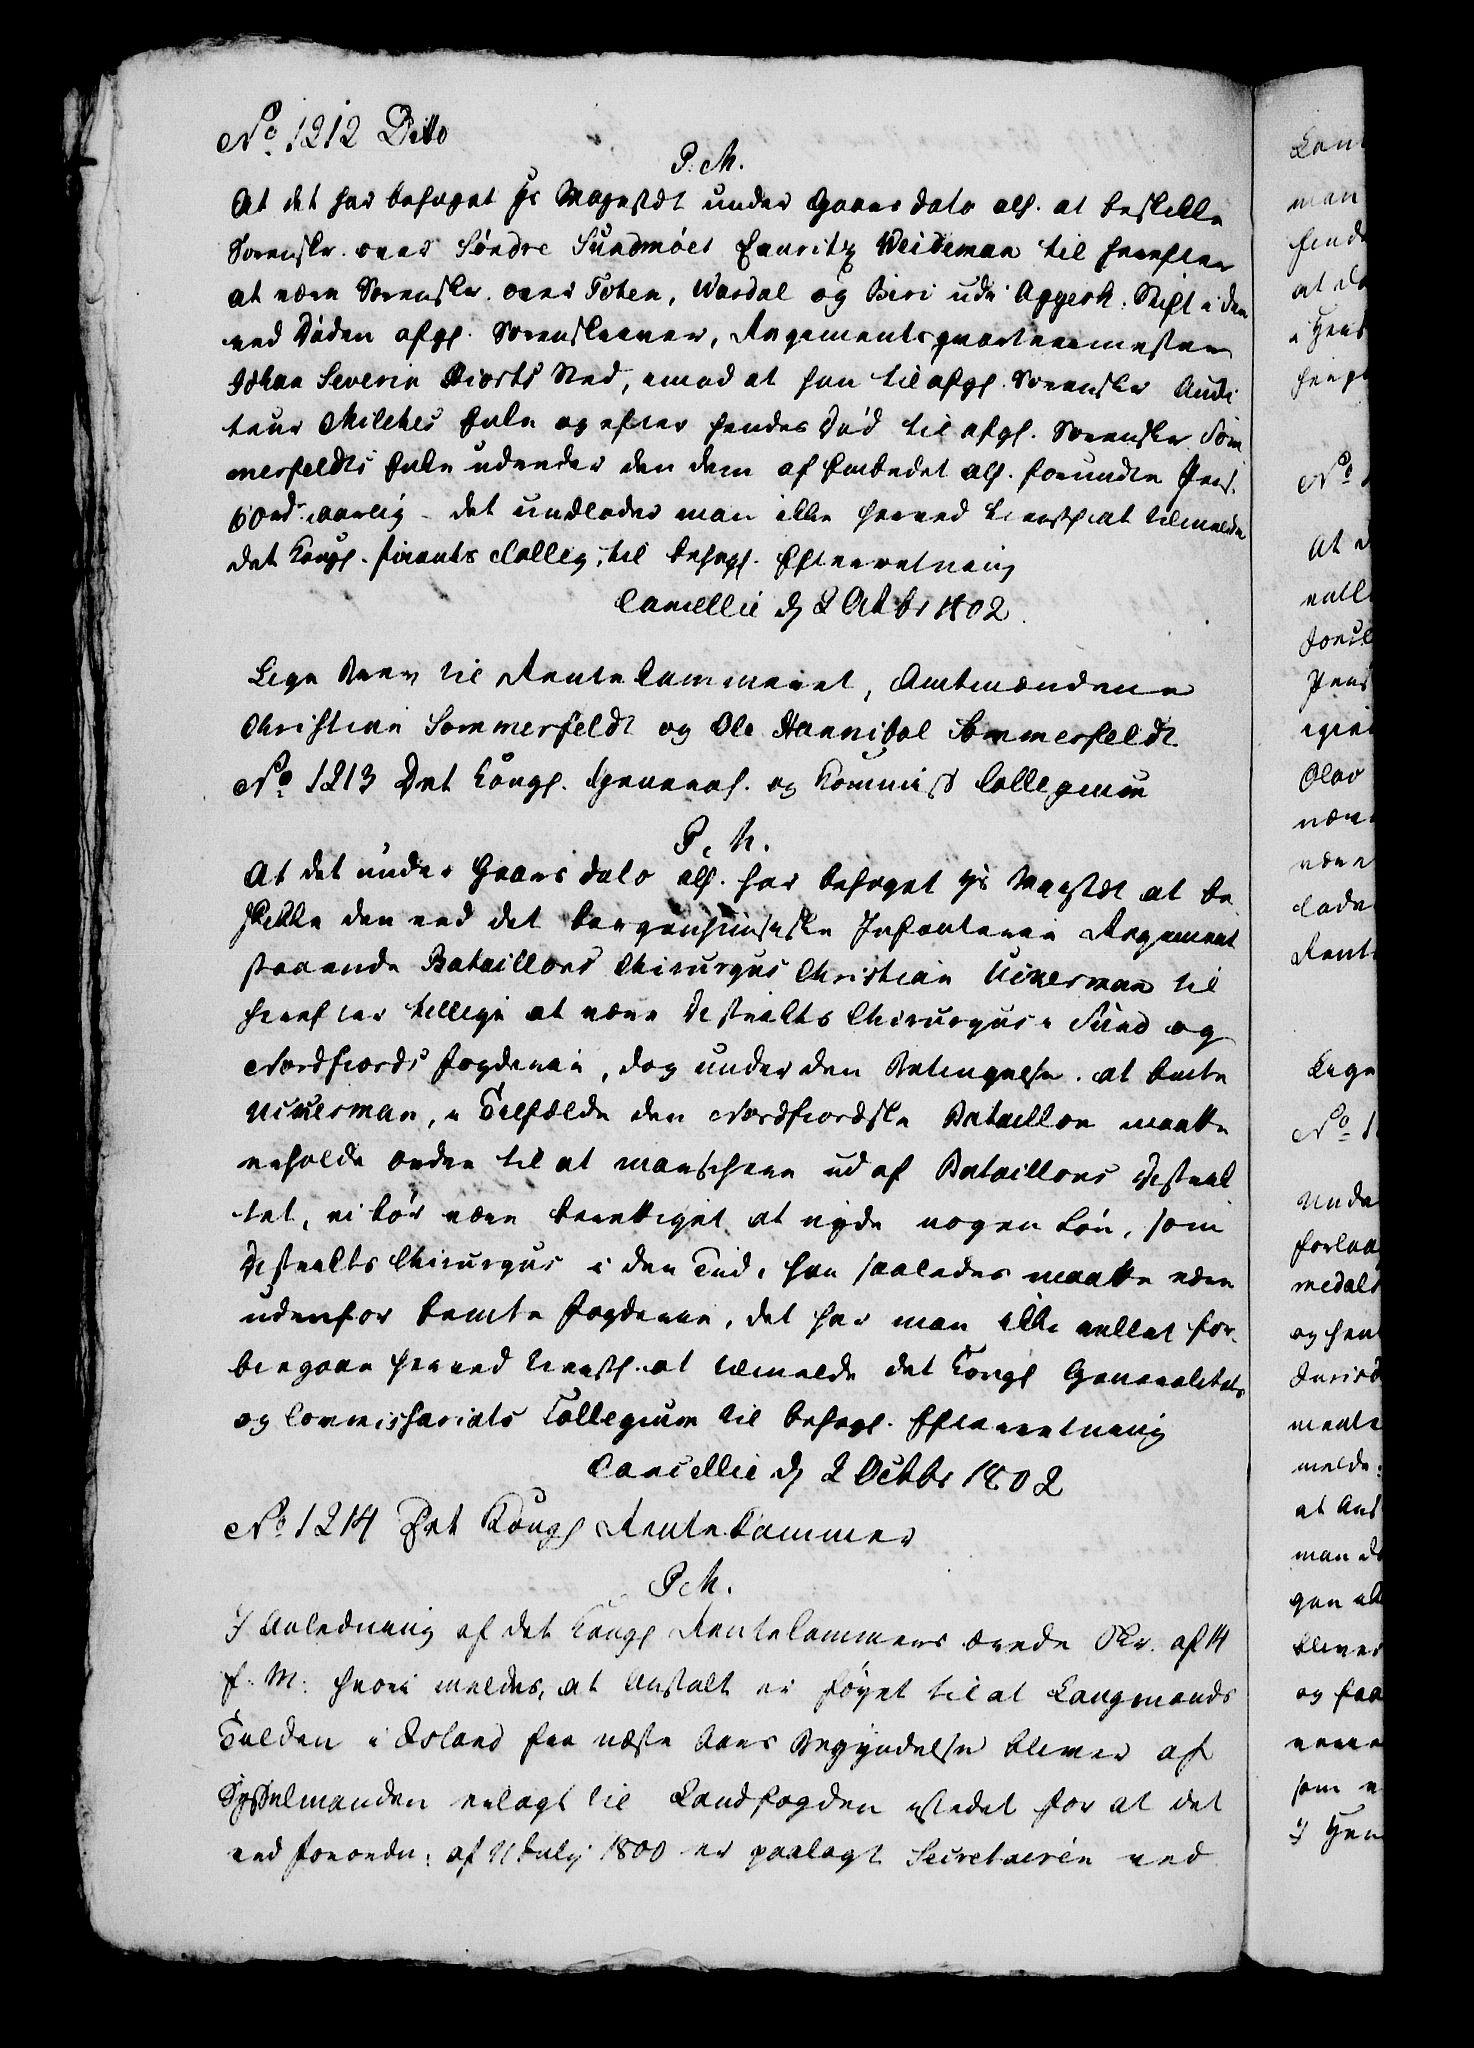 No 1212 Ditto
P. M.
At det har behaget Hs Majestæt under Gaars dato all. at beskikke
Sorenskr. over Søndre Sundmøer Lauritz Weideman til herefter
at være Sorenskr. over Toten, Wardal og Biri udi Aggerh. Stift i den
ved Døden afg. Sorenskriver, Regimentsqvarteermester
Johan Severin Hiorts Sted, imod at han til afg. Sorenskr Audi
teur Milches Enke og efter hendes Død til afg. Sorenskr. Som
merfeldts Enke udreder den dem af Embedet all. forundte Pens.
60 rd. aarlig - det undlader man ikke herved tienstl. at tilmelde
det Kongl. finants Colleg. til behagl. Efterretning
Cancellie d. 2 Octbr 1802.
Lige Brev til Rentekammeret, Amtmændene
Christian Sommerfeldt og Ole Hannibal Sommerfeldt
No 1213 Det Kongl. General. og Commiss Collegium
P. M.
At det under Gaars dato all. har behaget Hs Majestæt at be
skikke den ved det bergenhuusiske Infanterie Regiment
staaende Bataillons Chirurgus Christian Uckerman til
herefter tillige at være Districts Chirurgus i Sund og
Nordfiords fogderie, dog under den Betingelse, at bemte
Uckerman, i Tilfælde den Nordfiordske Bataillon maatte
erholde Ordre til at marschere ud af Bataillons Distrik
tet, ei bør være berettiget at nyde nogen Løn, som
Districts Chirurgus i den Tid, han saaledes maatte være
udenfor bemte fogderie, det har man ikke villet for-
bigaae herved tienstl. at tilmelde det Kongl Generalitets
og Commissariats Collegium til behagl. Efterretning
Cancellie d. 2 Octbr 1802
No 1214 Det Kongl Rentekammer
P. M.
I Anledning af det Kongl Rentekammers ærede Skr. af 14
f. M. hvori meldes, at Anstalt er føyet til at Laugmands
Tolden i Island fra næste Aars Begyndelse bliver af
Sysselmanden erlagt til Landfogden istedet for at det
ved forordn: af 11 July 1800 er paalagt Secretairen ved